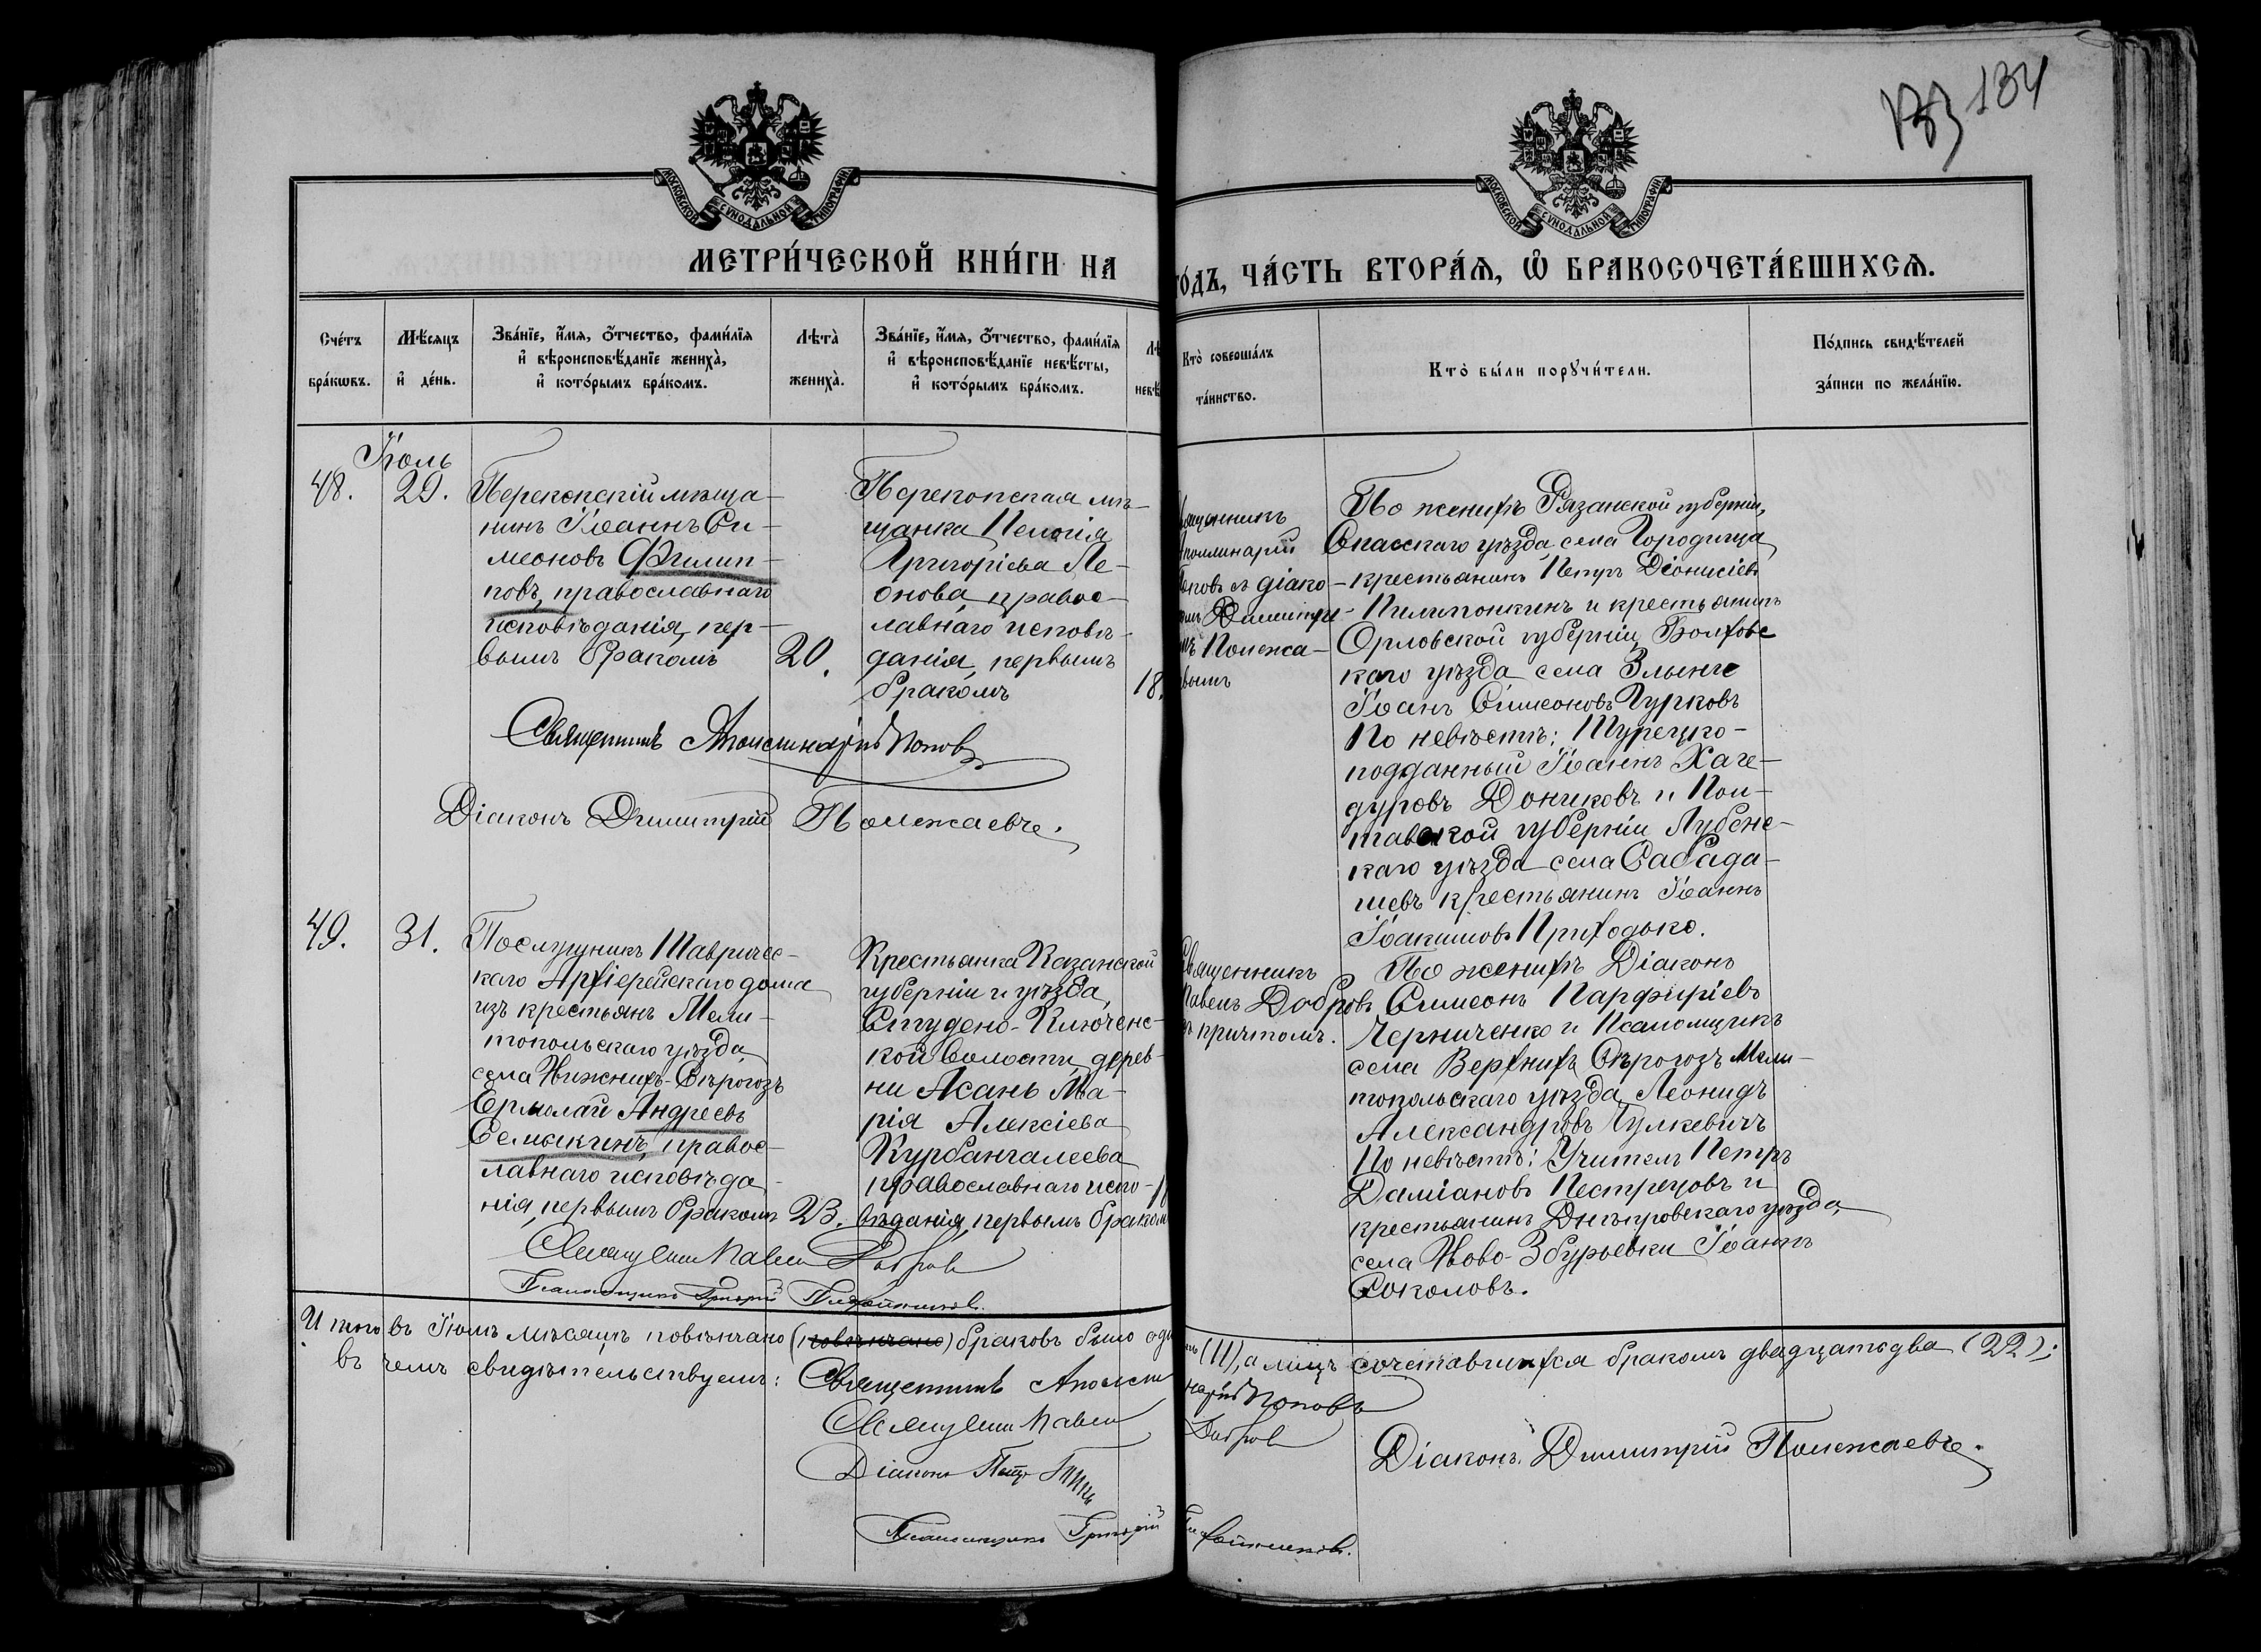 133 134
МОСКОВСКОЙ СУНОДАЛЬНОЙ ТИПОГРАФІИ
МОСКОВСКОЙ СУНОДАЛЬНОЙ ТИПОГРАФІИ
МЕТРИ́ЧЕСКОЙ КНИ́ГИ НА
ГО́ДЪ, ЧА́СТЬ ВТОРА́Ѧ, Ѽ БРАКОСОЧЕТА́ВШИХСѦ.
Сче́тъ
бра́кѡвъ.
Мѣ́сяцъ
и҆ де́нь.
Зва́нїе, и҆́мя, ѻ҆́тчество, фами́лїя
и҆ вѣроисповѣ́данїе жениха̀,
и҆ кото́рымъ бра́комъ.
Лѣта̀
жениха̀.
Зва́нїе, и҆́мя, ѻ҆́тчество, фами́лїя
и҆ вѣроисповѣ́данїе невѣ́сты,
и҆ кото́рымъ бра́комъ.
Лѣ
невѣ́
Кто̀ соверша́лъ
та́инство.
Кто̀ бы́ли порꙋчи́тели.
По́дпись свидѣ́телей
за́писи по жела́нїю.
Іюль
48.
29.
Перекопскій мѣща-
нинъ Іоаннъ Си-
меоновъ Филип-
повъ, православнаго
исповѣданія, пер-
вымъ бракомъ
20.
Перекопская мѣ-
щанка Пелагія
Григоріева Ле-
онова, правос-
лавнаго исповѣ-
данія, первымъ
бракомъ
18.
Священникъ Аполлинарій Поповъ
Діаконъ Димитрій Полежаевъ.
ященникъ
поллинарій
оповъ съ діако-
омъ Димитрі-
мъ Полежа-
вымъ
По женихѣ Рязанской губерніи,
Спасскаго уѣзда, села Городища
крестьянинъ Петръ Діонисіевъ
Пилипонкинъ и крестьянинъ
Орловской губерніи, Болховс
каго уѣзда села Злынге
Іоанъ Симеоновъ Гурковъ
По невѣстѣ: Турецко-
подданный Іоаннъ Хаге-
дуровъ Дончковъ и Пол-
тавской губерніи Лубенс-
каго уѣзда села Сабада-
шевъ крестьянинъ Іоаннъ
Іоакимовъ Приходько.
49.
31.
Послушникъ Тавричес-
каго Архіерейскаго дома
изъ крестьянъ Мели-
топольскаго уѣзда,
села Нижнихъ-Сѣрогозъ
Ермолай Андреевъ
Семыкинъ, правос-
лавнаго исповѣда-
нія, первымъ бракомъ
23.
Крестьянка Казанской
губерніи и уѣзда,
Студено-Ключенс-
кой волости, дерев-
ни Асань Ма-
рія Алексіева
Курбангалеева
православнаго испо-
вѣданія, первымъ браком
Священникъ Павелъ Добровъ
Псаломщикъ Григорій
Священникъ
Павелъ Добровъ
ъ причтомъ.
По женихѣ Діаконъ
Симеонъ Парфиріевъ
Черниченко и Псаломщикъ
села Верхнихъ Сѣрогозъ Мели-
топольскаго уѣзда, Леонидъ
Александровъ Гулкевичъ
По невѣстѣ: Учитель Петръ
Даміановъ Пестрецовъ и
крестьянинъ Днѣпровскаго уѣзда,
села Ново-Збурьевки Іоаннъ
Соколовъ.
Итого въ Іюлѣ мѣсяцѣ повѣнчано (повѣнчано) браковъ было оди
нъ (11), а лицъ сочетавшихся бракомъ двадцать два (22);
въ чемъ свидѣтельствуемъ: Священникъ Аполли
нарій Поповъ
Священникъ Павелъ
Добровъ
Діаконъ Димитрій Полежаевъ.
Діаконъ Петръ
Псаломщикъ Григорій